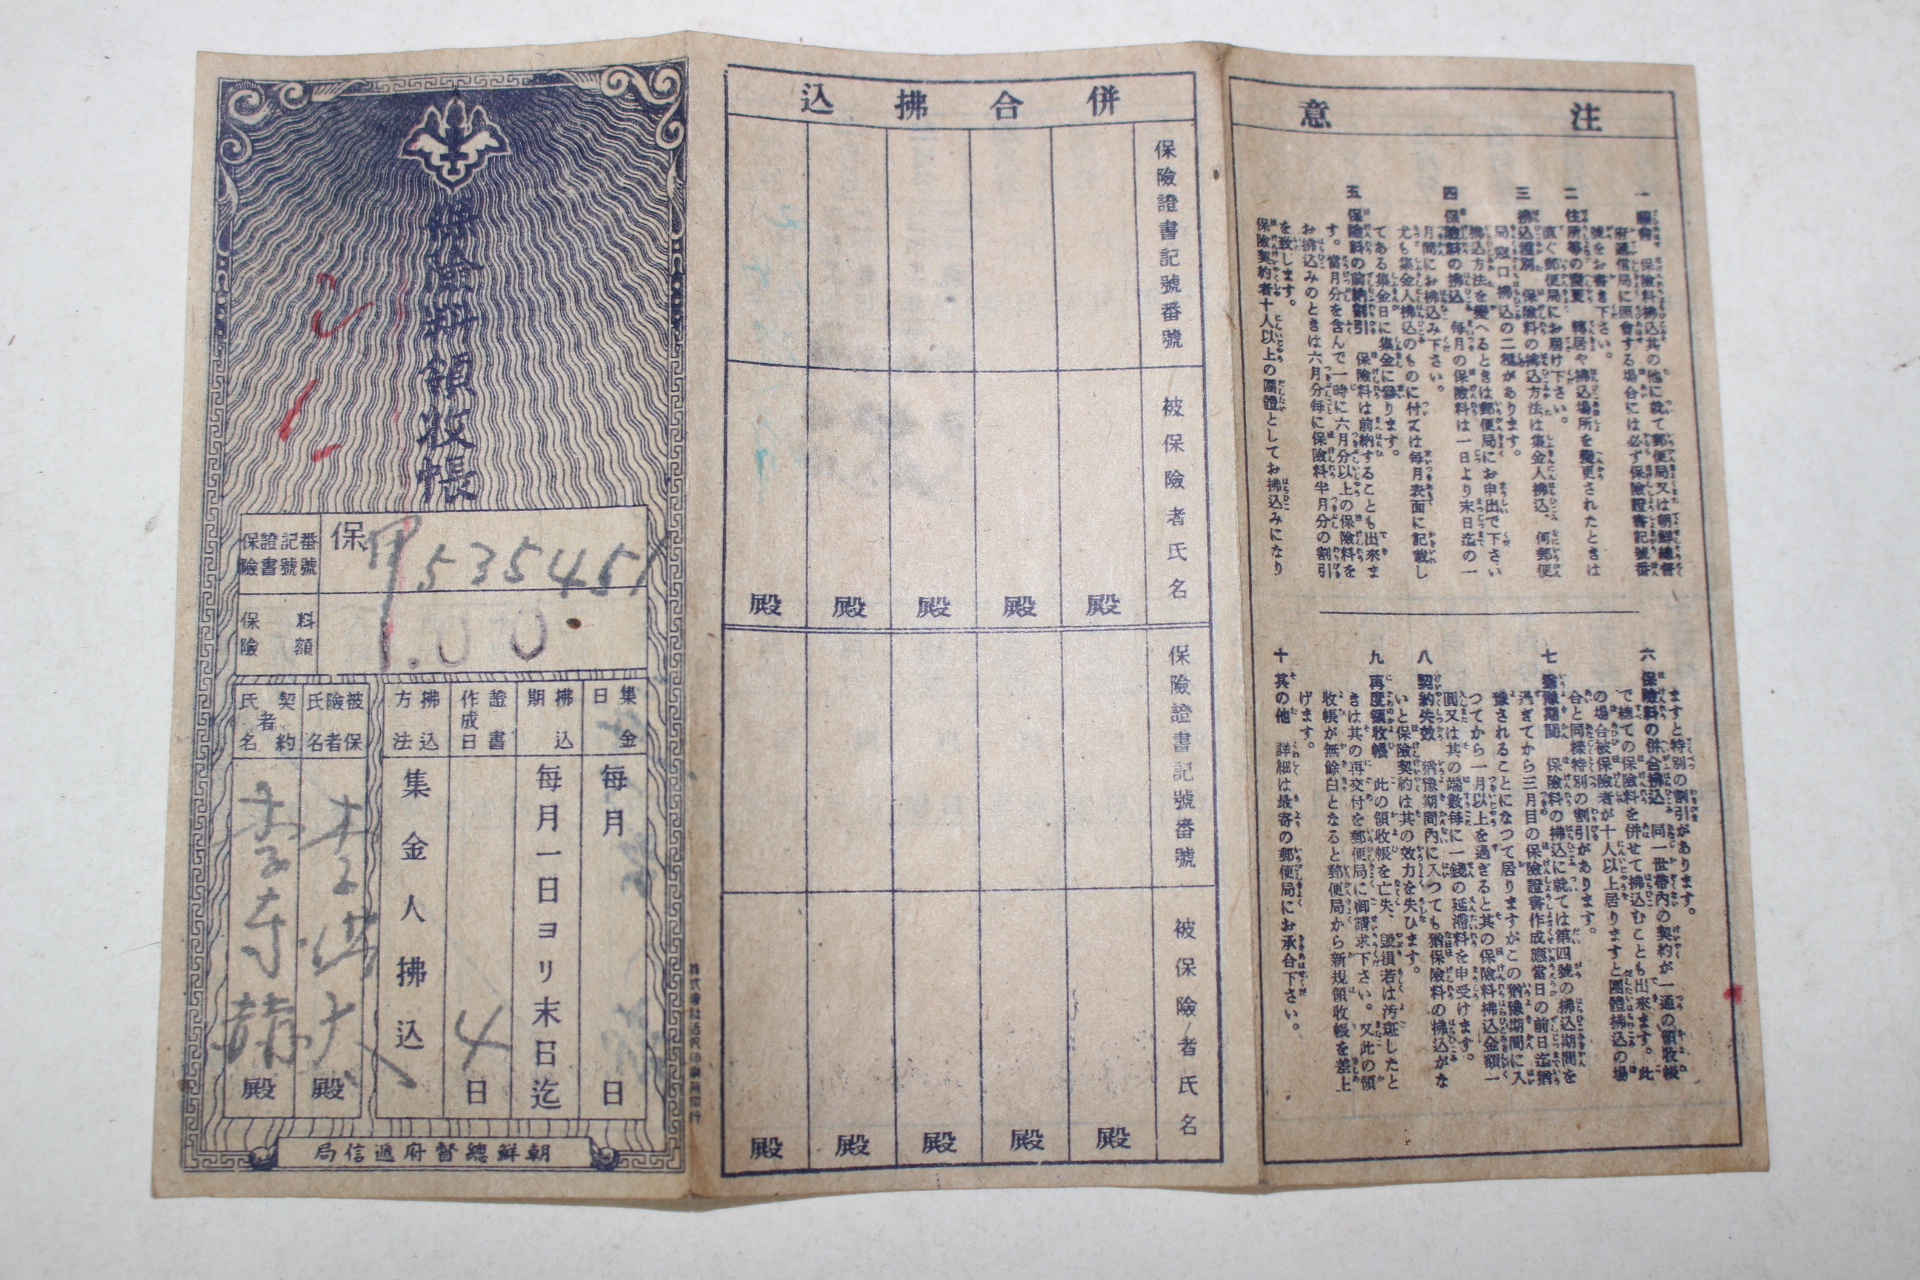 注意
一 照會 保險料拂込其の他に就て郵便局又は朝鮮總督
府遞信局に照會する場合には必ず保險證書記號番
號をお書き下さい。
二 住所等の變更 轉居や拂込場所を變更されたときは
直ぐ郵便局にお届け下さい。
三 拂込種別 保險料の拂込方法は集金人拂込、何郵便
局窓口拂込の二種があります。
拂込方法を變へるときは郵便局にお申出で下さい
四 保險料の拂込 毎月の保險料は一日より末日迄の一
月間にお拂込み下さい。
尤も集金人拂込のものに付ては毎月表面に記載し
てある集金日に集金に參ります。
五 保險料の前納割引 保險料は前納することも出來ま
す。當月分を含んで一時に六月分以上の保險料を
お拂込みのときは六月分毎に保險料半月分の割引
を致します。
保險契約者十人以上の團體としてお拂込みになり
ますと特別の割引があります。
六 保險料の併合拂込 同一世帶內の契約が一通の領收帳
で總ての保險料を併せて拂込むことも出來ます。此
の場合被保險者が十人以上居りますと團體拂込の場
合と同樣特別の割引があります。
七 猶豫期間 保險料の拂込に就ては第四號の拂込期間を
過ぎてから三月目の保險證書作成應當日の前日迄猶
豫されることになつて居りますがこの猶豫期間に入
つてから一月以上を過ぎると其の保險料拂込金額一
圓又は其の端數毎に一錢の延滯料を申受けます。
八 契約失效 猶豫期間內に入つても猶保險料の拂込がな
いと保險契約は其の效力を失ひます。
九 再度領收帳 此の領收帳を亡失、毀損若は汚斑したと
きは其の再交付を郵便局に御請求下さい。又此の領
收帳が無餘白となると郵便局から新規領收帳を差上
げます。
十 其の他 詳細は最寄の郵便局にお承合下さい。
併合拂込
保險證書記號番號
被保險者氏名
殿 殿 殿 殿 殿
保險證書記號番號
被保險者氏名
殿 殿 殿 殿 殿
保險料領收帳
保險證書記號番號
保 甲535451
保險料額
1.00
集金日
毎月 日
拂込期
毎月一日ヨリ末日迄
證書作成日
4日
拂込方法
集金人拂込
被保險者氏名
殿
契約者氏名
殿
朝鮮總督府遞信局